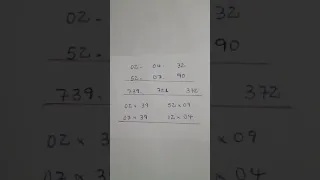 02- 04- 32
52- 07- 90
739- 372
02 x 39 52 x 09
07 x 39 12 x 04